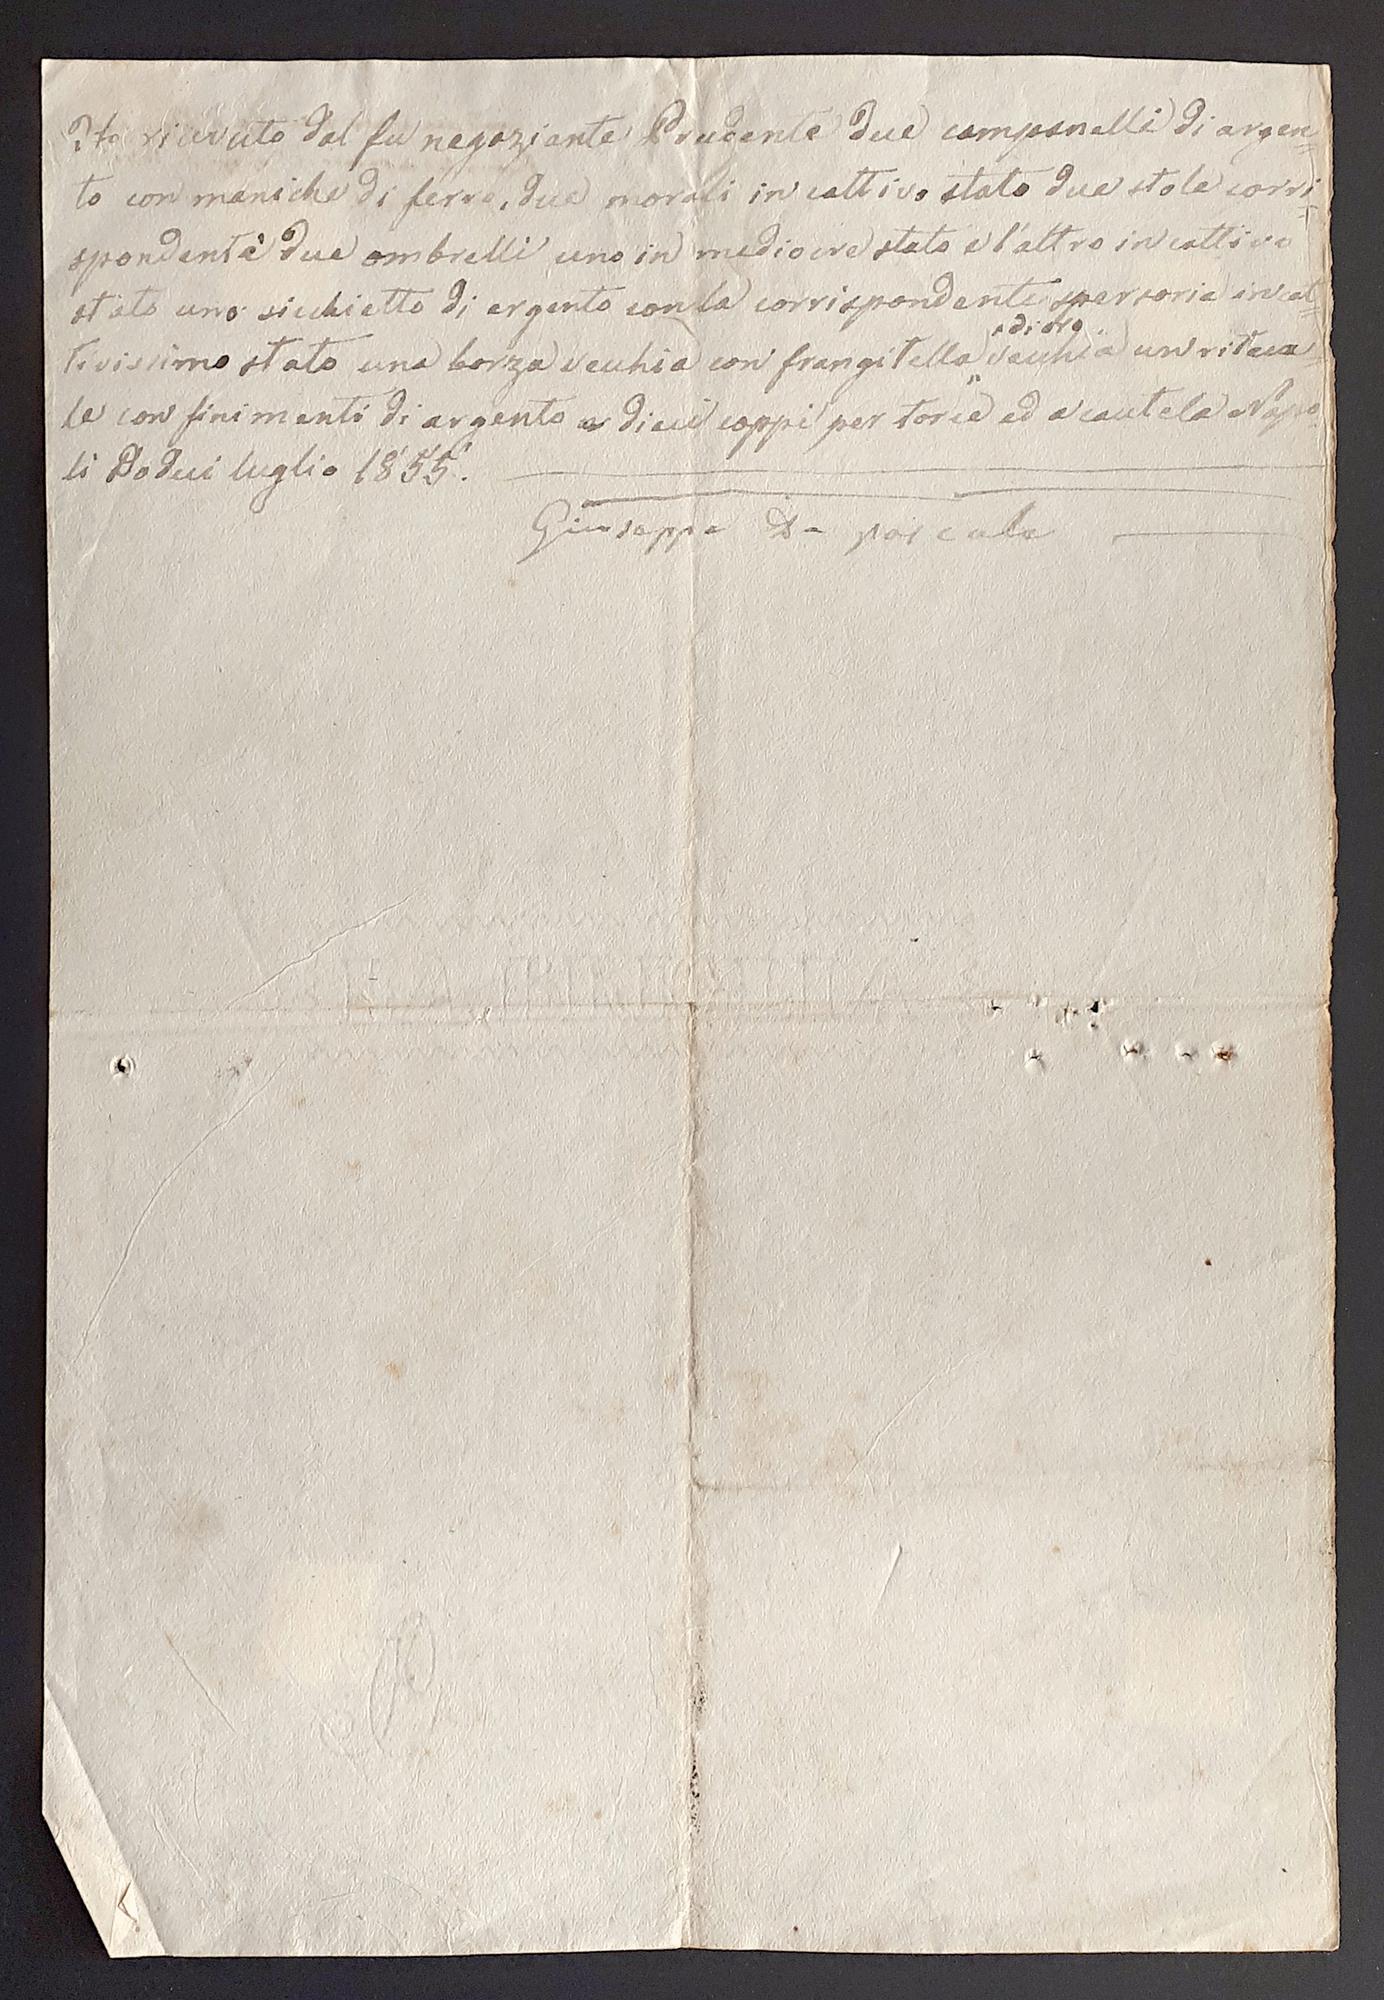 Ho ricevuto dal fu negoziante Prudente due campanelli di argen=
to con maniche di ferro, due morali in cattivo stato due stole corri=
spondenti due ombrelli uno in mediocre stato e l'altro in cattivo
stato uno sicchietto di argento con la corrispondente spersoria in cat=
tivissimo stato una borza vecchia con frangitella vecchia un ritua=
e di oro
le con finimenti di argento e dieci coppi per torcie ed a cautela Napo
li Dodici luglio 1855.
Giuseppe De pascale